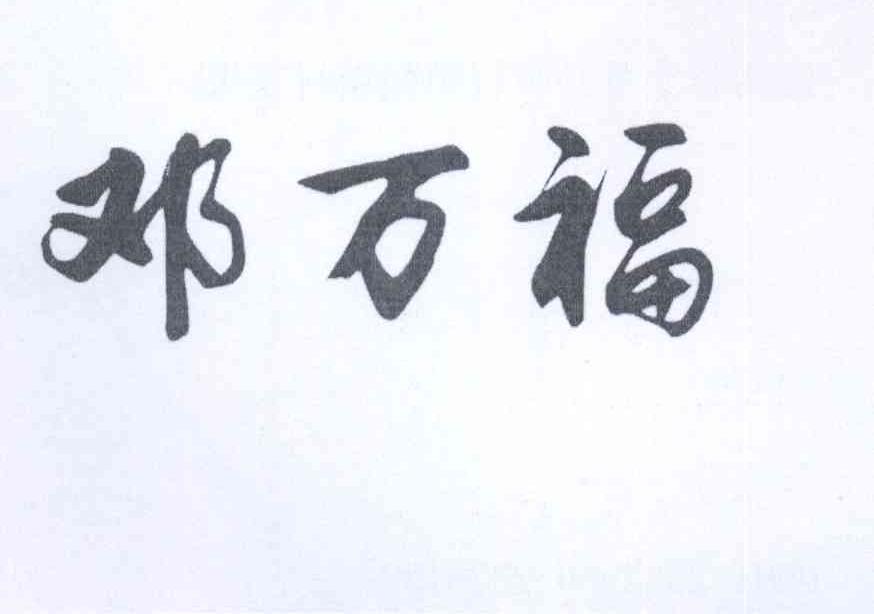 邓万福